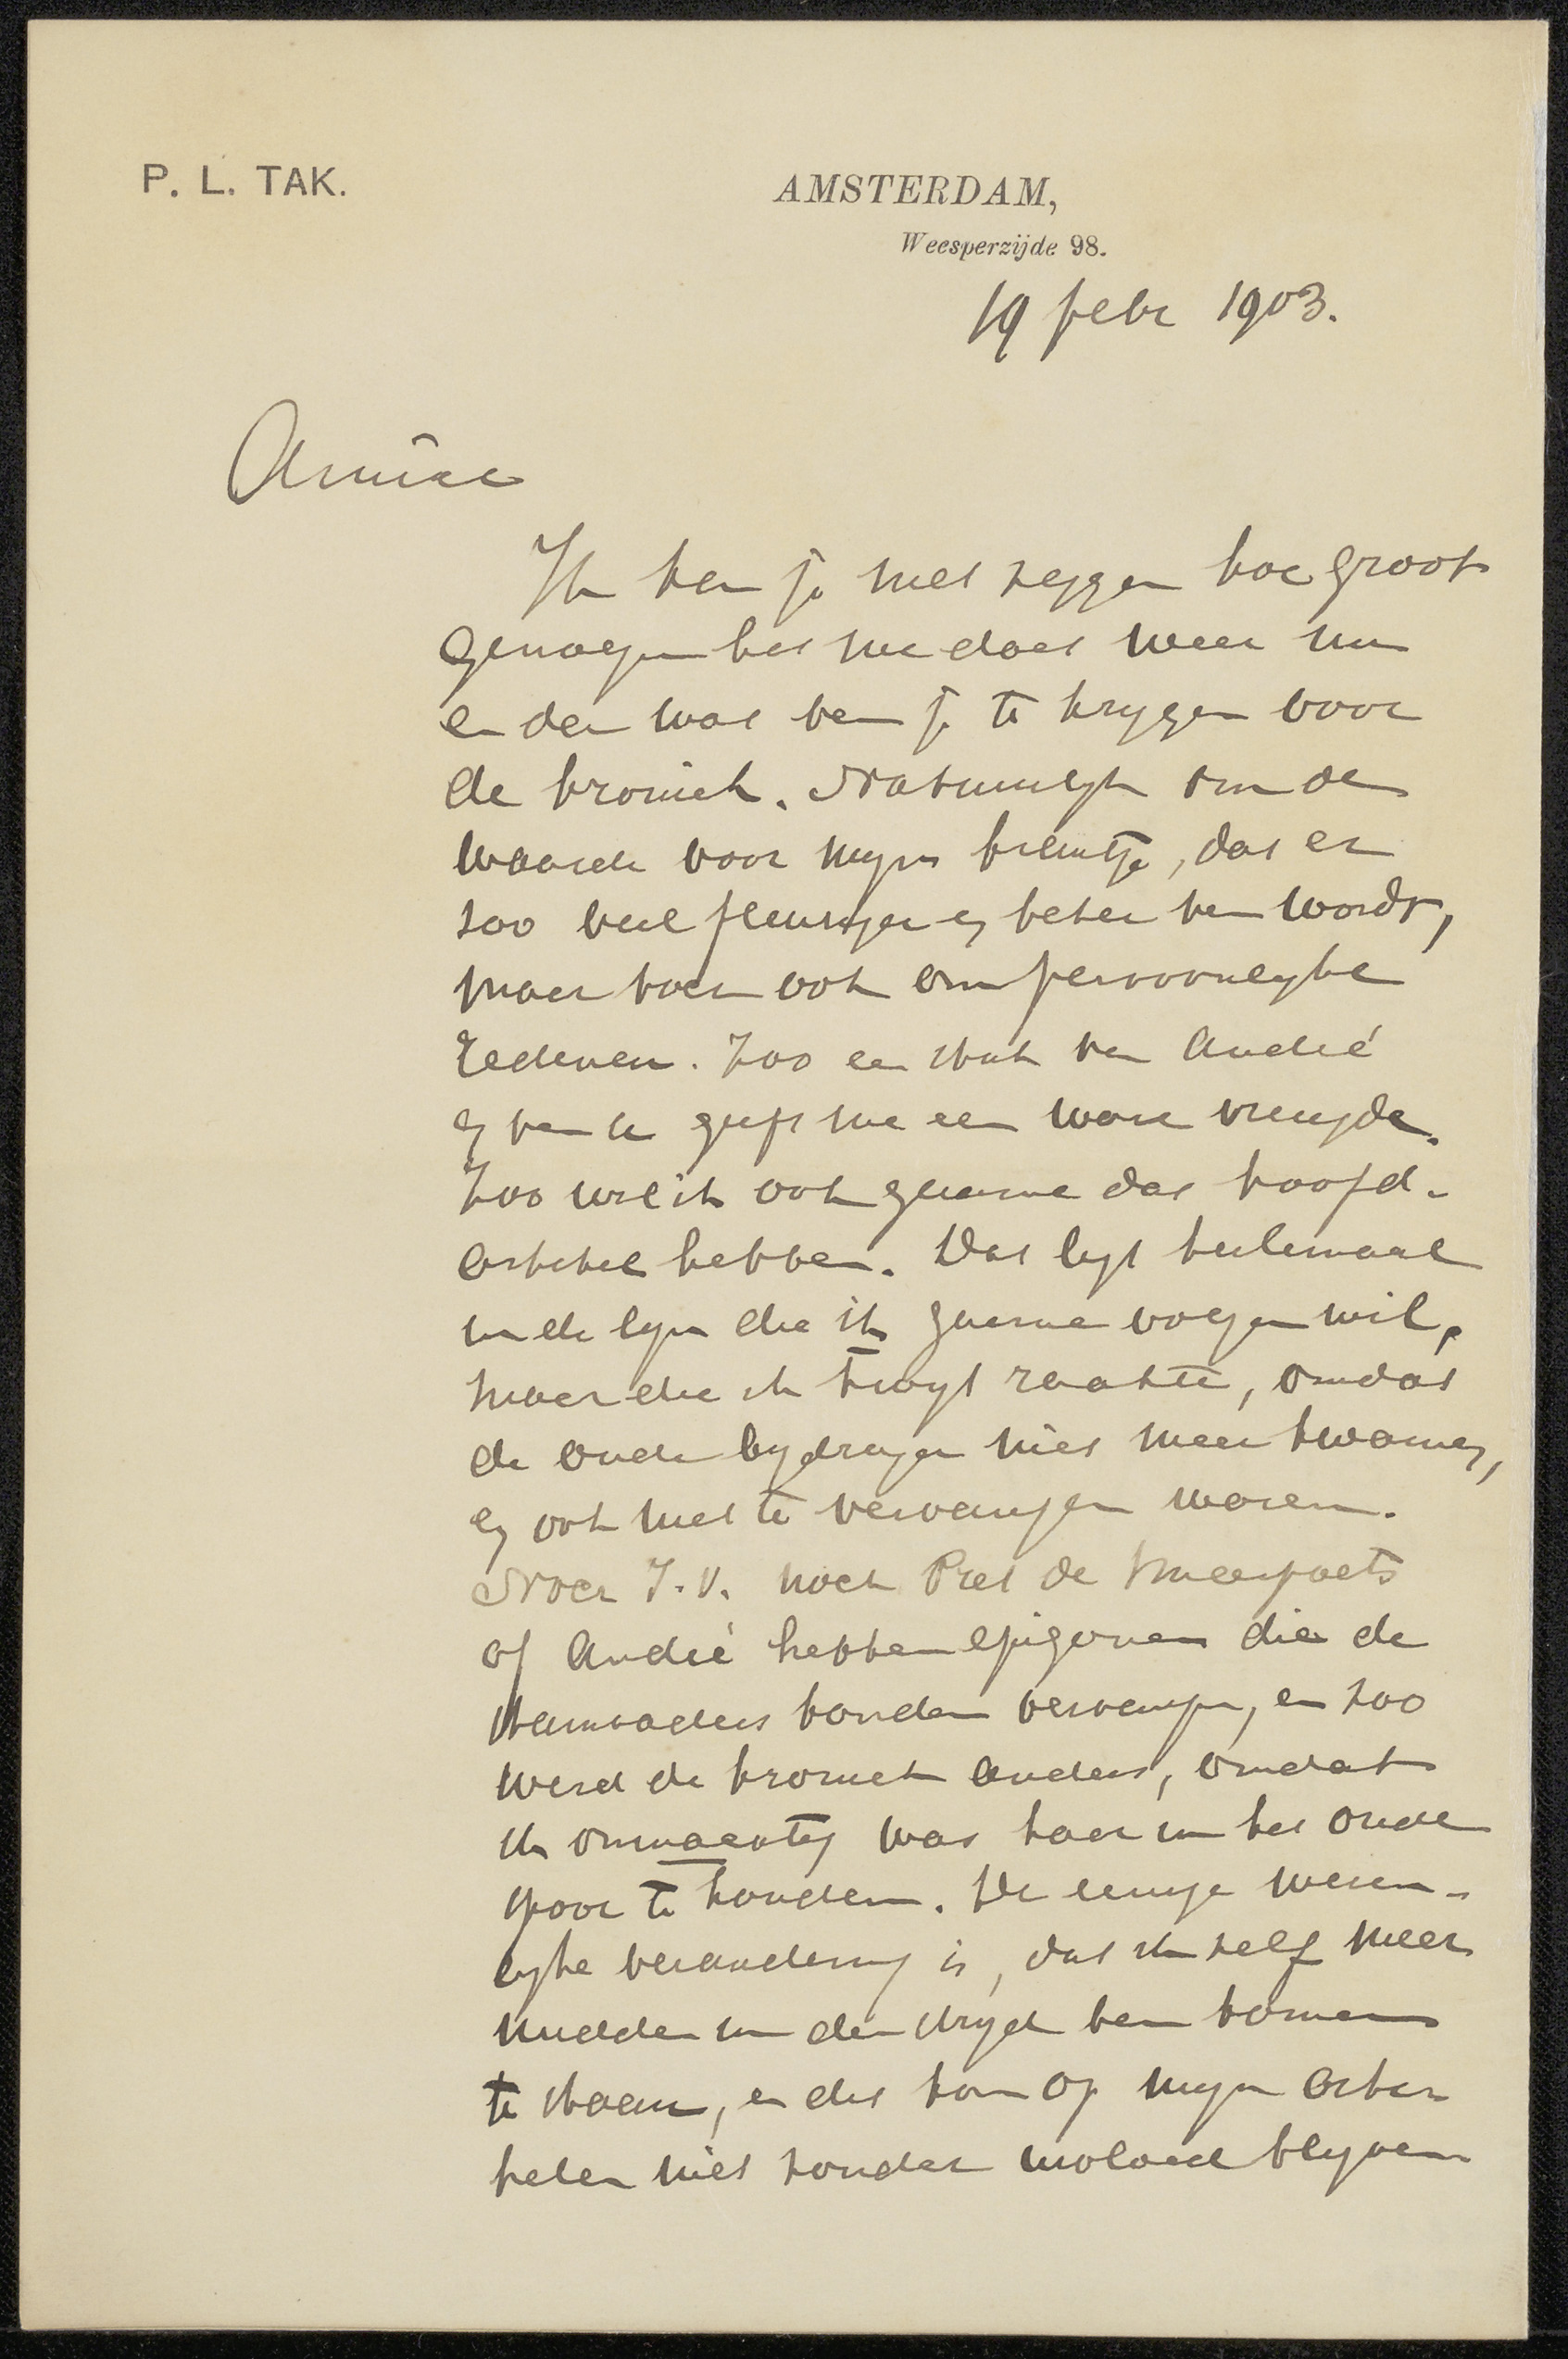 P. L. TAK.
AMSTERDAM,
Weesperzijde 98.
19 febr 1903.
Amice
Ik kan je niet zeggen hoe groot
genoegen het me doet weer nu
en dan wat van je te krygen voor
de kroniek. Natuurlyk om de
waarde voor myn krantje, dat er
zoo veel fleuriger en beter van wordt,
maar toch ook om persoonlyke
redenen. Zoo een stuk van André
en van u geeft me een ware vreugde.
Zoo wil ik ook gaarne dat hoofd-
artikel hebben. Dat ligt heelemaal
in de lyn die ik gaarne volgen wil,
maar die ik kwyt raakte, omdat
de oude bydragen niet meer kwamen,
en ook niet te vervangen waren.
Noch J.V. noch Piet de
of André hebben epigonen die de
stamvaders konden vervangen, en zoo
werd de kroniek anders, omdat
ik onmachtig was haar in het oude
spoor te houden. De eenige wezen-
lyke verandering is, dat ik zelf meer
midden in den stryd ben komen
te staan, en dit kon op myn arti-
kelen niet zonder invloed blyven